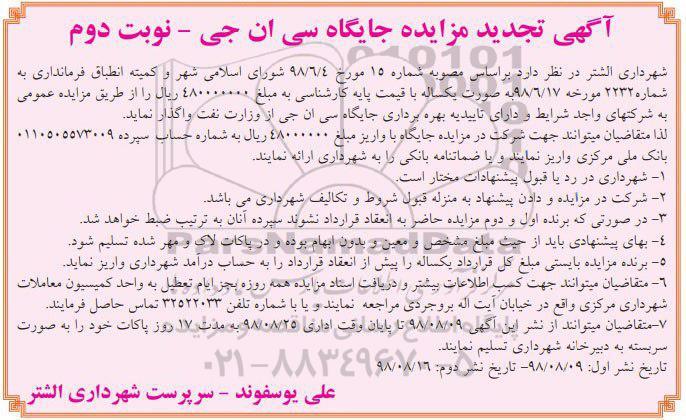 آگهی تجدید مزایده جایگاه سی ان جی - نوبت دوم
شهرداری الشتر در نظر دارد براساس مصوبه شماره ۱۵ مورخ ۹۸/۶/۴ شورای اسلامی شهر و کمیته انطباق فرمانداری به
شماره۲۲۳۲ مورخه ۹۸/۶/۱۷به صورت یکساله با قیمت پایه کارشناسی به مبلغ ۴۸۰۰۰۰۰۰۰ ریال را از طریق مزایده عمومی
به شرکتهای واجد شرایط و دارای تاییدیه بهره برداری جایگاه سی ان جی از وزارت نفت واگذار نماید.
لذا متقاضیان میتوانند جهت شرکت در مزایده جایگاه با واریز مبلغ ۴۸۰۰۰۰۰۰ ریال به شماره حساب سپرده ۰۱۱۰۵۰۵۵۷۳۰۰۹
بانک ملی مرکزی واریز نمایند و یا ضمانتنامه بانکی را به شهرداری ارائه نمایند.
۱- شهرداری در رد یا قبول پیشنهادات مختار است.
۲- شرکت در مزایده و دادن پیشنهاد به منزله قبول شروط و تکالیف شهرداری می باشد.
۳- در صورتی که برنده اول و دوم مزایده حاضر به انعقاد قرارداد نشوند سپرده آنان به ترتیب ضبط خواهد شد.
۴- بهای پیشنهادی باید از حیث مبلغ مشخص و معین و بدون ابهام بوده و در پاکات لاک و مهر شده تسلیم شود.
۵- برنده مزایده بایستی مبلغ کل قرارداد یکساله را پیش از انعقاد قرارداد را به حساب درآمد شهرداری واریز نماید.
۶- متقاضیان میتوانند جهت کسب اطلاعات بیشتر و دریافت اسناد مزایده همه روزه بجز ایام تعطیل به واحد کمیسیون معاملات
شهرداری مرکزی واقع در خیابان آیت اله بروجردی مراجعه نمایند و یا با شماره تلفن ۳۲۵۲۲۰۳۳ تماس حاصل فرمایند.
۷-متقاضیان میتوانند از نشر این آگهی ۹۸/۰۸/۰۹ تا پایان وقت اداری ۹۸/۰۸/۲۵ به مدت ۱۷ روز پاکات خود را به صورت
سربسته به دبیرخانه شهرداری تسلیم نمایند.
تاریخ نشر اول: ۹۸/۰۸/۰۹- تاریخ نشر دوم: ۹۸/۰۸/۱۶
علی یوسفوند - سرپرست شهرداری الشتر
ParsNamadData
۰۲۱-۸۸۳۴۹۶۷۰-۵